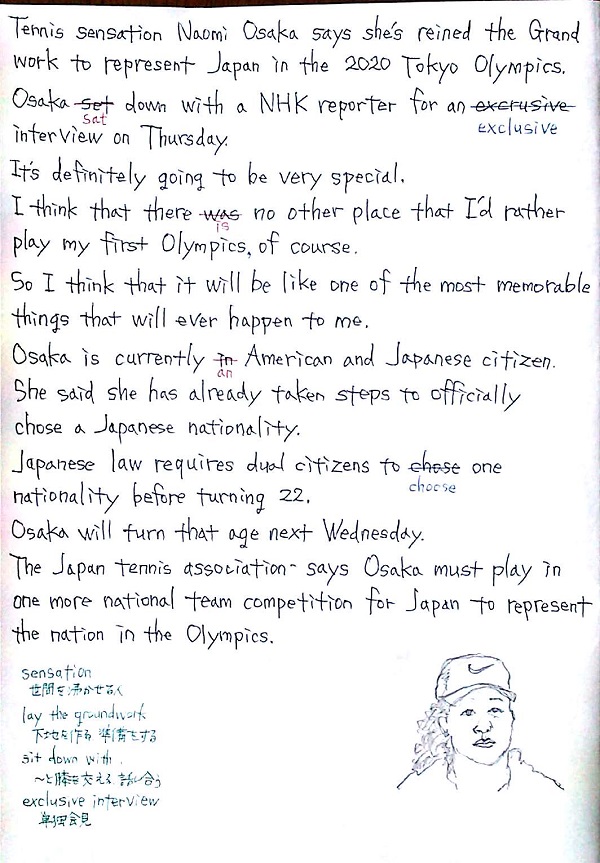 Tennis sensation Naomi Osaka says she's reined the Grand
work to represent Japan in the 2020 Tokyo Olympics.
Osaka set down with a NHK reporter for an excrusive
sat
exclusive
interview on Thursday.
It's definitely going to be very special.
I think that there was no other place that I'd rather
is
play my first Olympics, of course.
So I think that it will be like one of the most memorable
things that will ever happen to me.
Osaka is currently in American and Japanese citizen.
an
She said she has already taken steps to officially
chose a Japanese nationality.
Japanese law requires dual citizens to chose one
choose
nationality before turning 22.
Osaka will turn that age next Wednesday.
The Japan tennis association says Osaka must play in
one more national team competition for Japan to represent
the nation in the Olympics.
sensation
世間を沸かせる
lay the groundwork
下地を作る 準備をする
sit down with
〜と膝を交える 話し合う
exclusive interview
単独会見